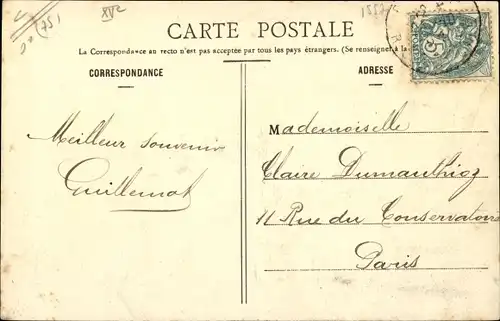 (75)
XVe
CARTE POSTALE
La Correspondance au recto n'est pas acceptée par tous les pays étrangers. (Se renseigner à la
CORRESPONDANCE
ADRESSE
Meilleur souvenir
Guillemot
Mademoiselle
Claire Dumanthioz
11 Rue du Conservatoire
Paris